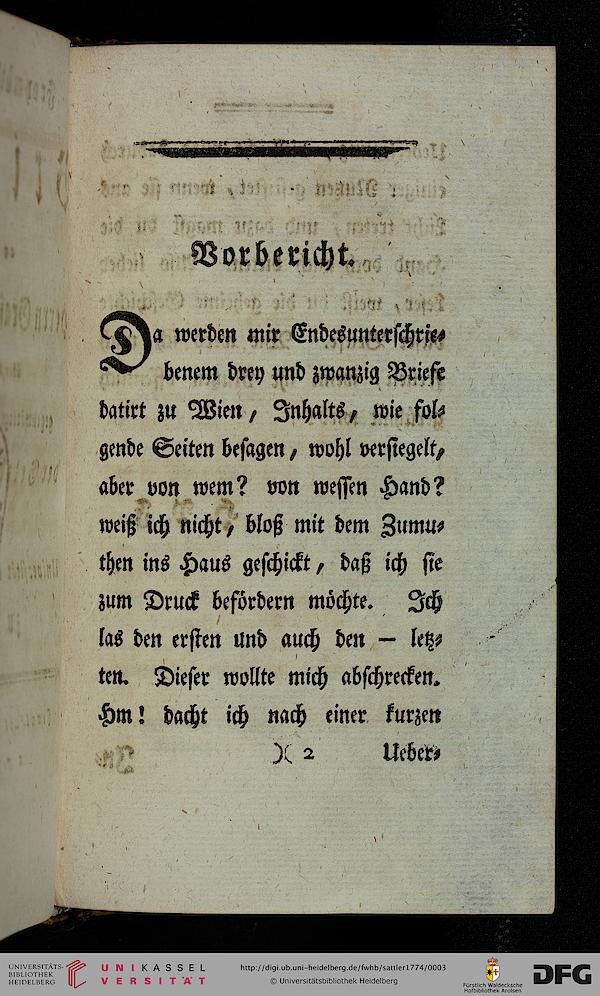 Vorbericht.
Da werden mir Endesunterschrie⸗
benem drey und zwanzig Briefe
datirt zu Wien, Inhalts, wie fol⸗
gende Seiten besagen, wohl versiegelt,
aber von wem? von wessen Hand?
weiß ich nicht, bloß mit dem Zumu⸗
then ins Haus geschickt, daß ich sie
zum Druck befördern möchte. Ich
las den ersten und auch den — letz⸗
ten. Dieser wollte mich abschrecken.
Hm! dacht ich nach einer kurzen
)( 2 Ueber⸗
UNIVERSITÄTS-
BIBLIOTHEK
HEIDELBERG
UNIKASSEL
VERSITÄT
http://digi.ub.uni-heidelberg.de/fwhb/sattler1774/0003
© Universitätsbibliothek Heidelberg
Fürstlich Waldecksche
Hofbibliothek Arolsen
DFG